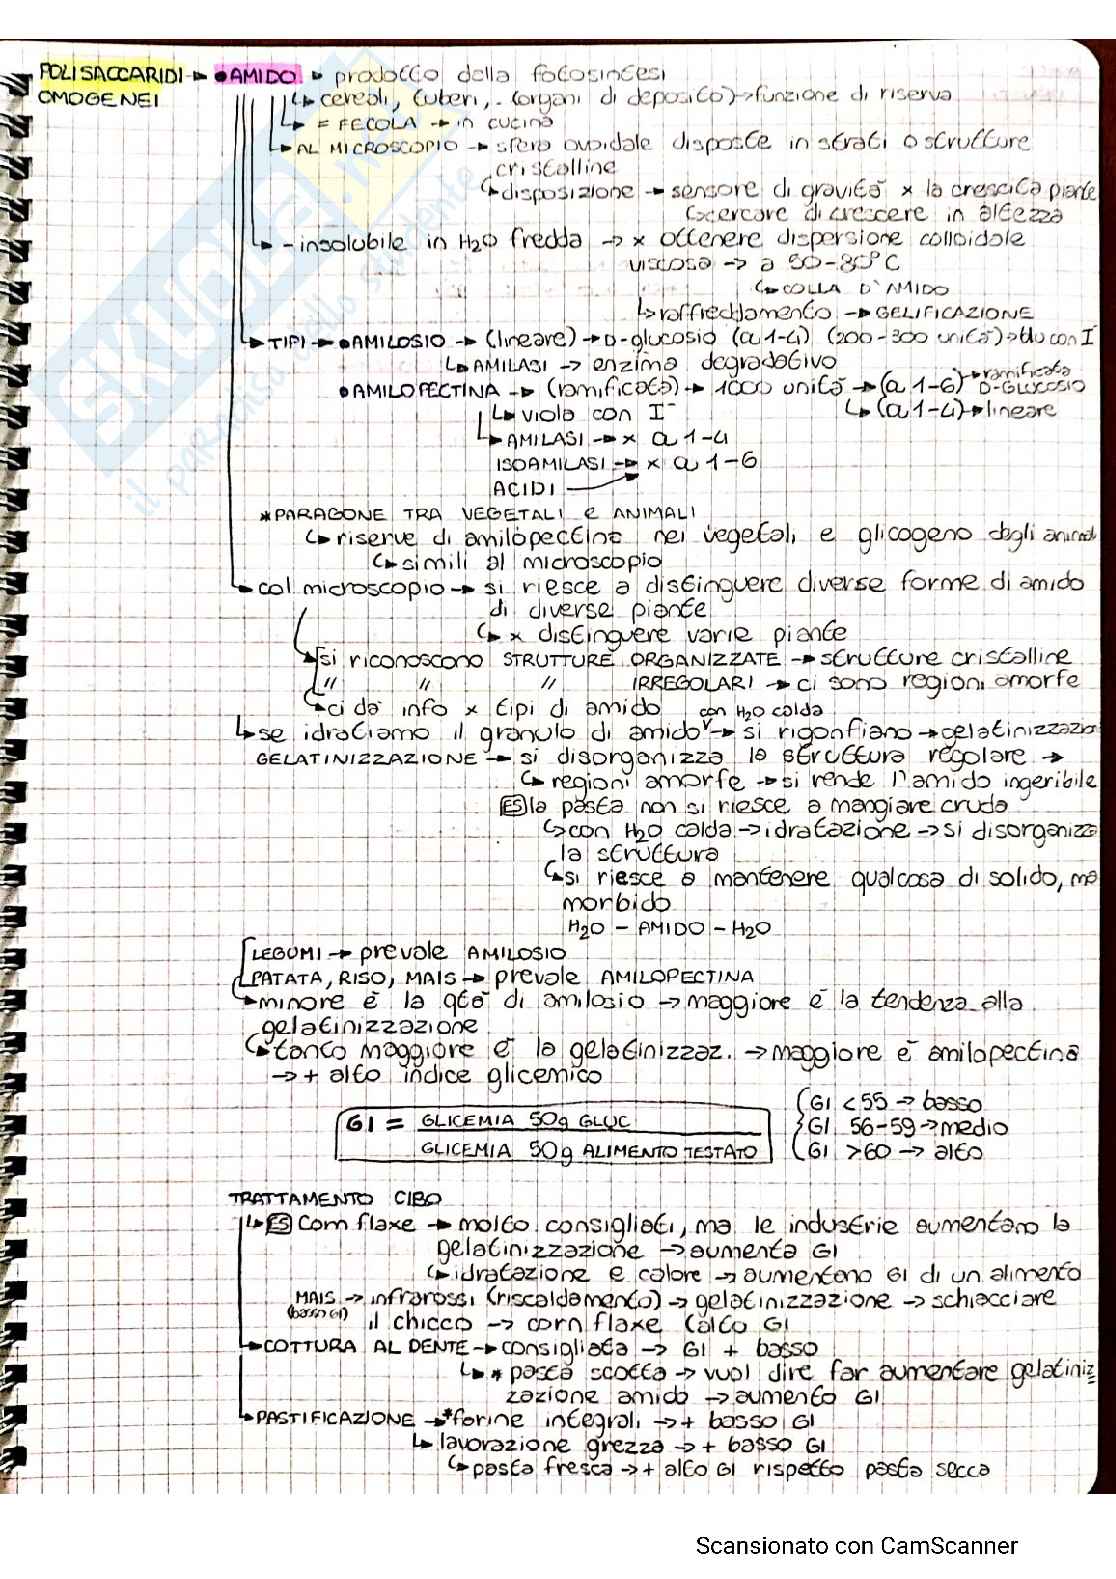 POLISACCARIDI → • AMIDO → prodotto della fotosintesi
OMOGENEI
↳ cereali, tuberi, .. (organi di deposito) → funzione di riserva
↳ = FECOLA → in cucina
↳ AL MICROSCOPIO → sfera ovoidale disposte in strati o strutture
cristalline
↳ disposizione → sensore di gravità x la crescita piante
(cercare di crescere in altezza
↳ - insolubile in H2O fredda → x ottenere dispersione colloidale
viscosa → a 50-80°C
↳ COLLA D'AMIDO
↳ raffreddamento → GELIFICAZIONE
↳ TIPI → • AMILOSIO → (lineare) → D-glucosio (α 1-4) (200-300 unità) → blu con I
↳ AMILASI → enzima degradativo
• AMILOPECTINA → (ramificata) → 1000 unità → (α 1-6) → ramificata D-GLUCOSIO
↳ viola con I⁻ ↳ (α 1-4) → lineare
↳ AMILASI → x α 1-4
ISOAMILASI → x α 1-6
ACIDI
* PARAGONE TRA VEGETALI e ANIMALI
↳ riserve di amilopectina nei vegetali e glicogeno degli animali
↳ simili al microscopio
↳ col microscopio → si riesce a distinguere diverse forme di amido
di diverse piante
↳ x distinguere varie piante
si riconoscono STRUTTURE ORGANIZZATE → strutture cristalline
" " " IRREGOLARI → ci sono regioni amorfe
↳ ci da info x tipi di amido
↳ se idratiamo il granulo di amido con H2O calda → si rigonfiano → gelatinizzazion
GELATINIZZAZIONE → si disorganizza la struttura regolare →
↳ regioni amorfe → si rende l'amido ingeribile
ES la pasta non si riesce a mangiare cruda
↳ con H2O calda → idratazione → si disorganizza
la struttura
↳ si riesce a mantenere qualcosa di solido, ma
morbido
H2O - AMIDO - H2O
LEGUMI → prevale AMILOSIO
PATATA, RISO, MAIS → prevale AMILOPECTINA
↳ minore è la qtà di amilosio → maggiore è la tendenza alla
gelatinizzazione
↳ tanto maggiore è la gelatinizzaz. → maggiore è amilopectina
→ + alto indice glicemico
GI = GLICEMIA 50g GLUC
GLICEMIA 50g ALIMENTO TESTATO
GI < 55 → basso
GI 56-59 → medio
GI > 60 → alto
TRATTAMENTO CIBO
↳ ES Corn flaxe → molto consigliati, ma le industrie aumentano la
gelatinizzazione → aumenta GI
↳ idratazione e calore → aumentano GI di un alimento
MAIS → infrarossi (riscaldamento) → gelatinizzazione → schiacciare
(basso GI) il chicco → corn flaxe (alto GI
↳ COTTURA AL DENTE → consigliata → GI + basso
↳ * pasta scotta → vuol dire far aumentare gelatiniz
zazione amido → aumento GI
↳ PASTIFICAZIONE → * farine integrali → + basso GI
↳ lavorazione grezza → + basso GI
↳ pasta fresca → + alto GI rispetto pasta secca
SKUOLA.NET
il paradiso dello studente
Scansionato con CamScanner